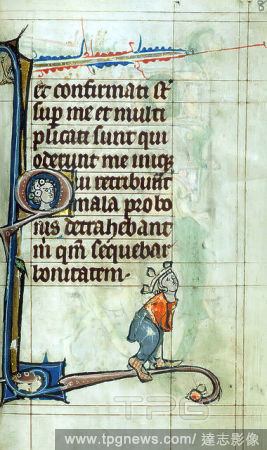 8
et confirmati st
sup me et multi
plicati sunt qui
oderunt me iniq
Qui retribuūt
mala pro bo
nis detrahebant
m qm sequebar
bonitatem.
TPG
www.tpgnews.com / 達志影像